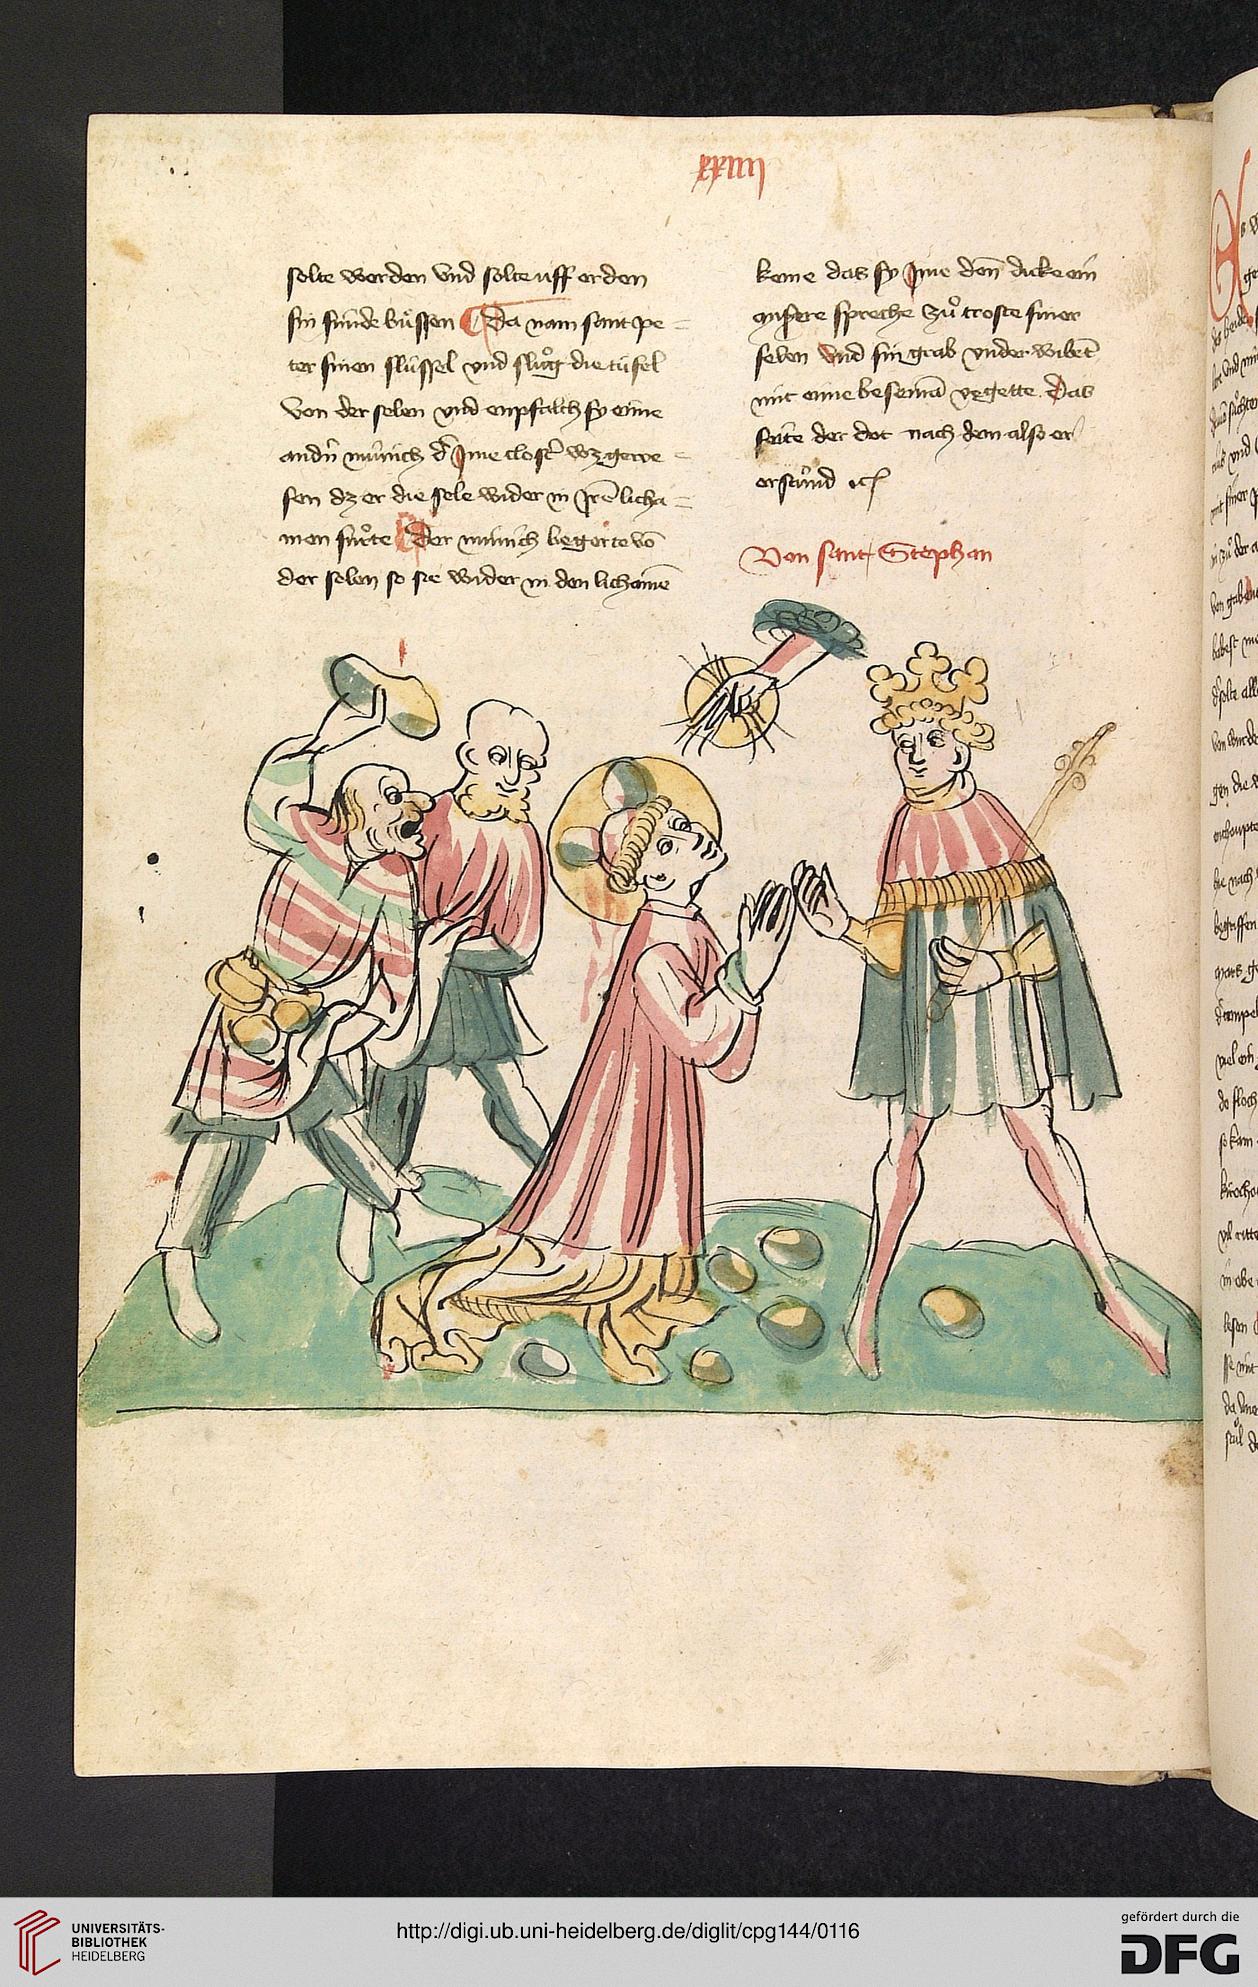 xxiiij
solte werden vnd solte uff erden
sin sünde büssen Da nam sant pe
ter sinen slüssel vnd slůg die tüfel
von der selen vnd enpfalch sy eime
andn̄ münich d' Jme clost' wz gewe
sen dz er die sele wider in Jrē licha
men fůrte Der münich begerte vō
der selen so sie wider in den lichamē
keme das sy Jme den dicke ein
misere spreche zů troste siner
selen vnd sin grab vnder wilent
mit eime besemā vegette Das
seite der dot nach dem also er
erstůnd ꝛcꝭ
Von sant Stephan
UNIVERSITÄTS-
BIBLIOTHEK
HEIDELBERG
http://digi.ub.uni-heidelberg.de/diglit/cpg144/0116
gefördert durch die
DFG